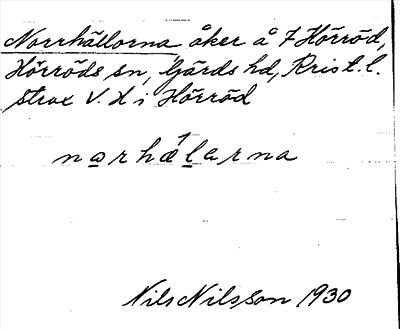 Norrhällorna åker å 7 Hörröd,
Hörröds sn, Gärds hd, Krist. l.
strax V. H i Hörröd
norhælarna
Nils Nilsson 1930